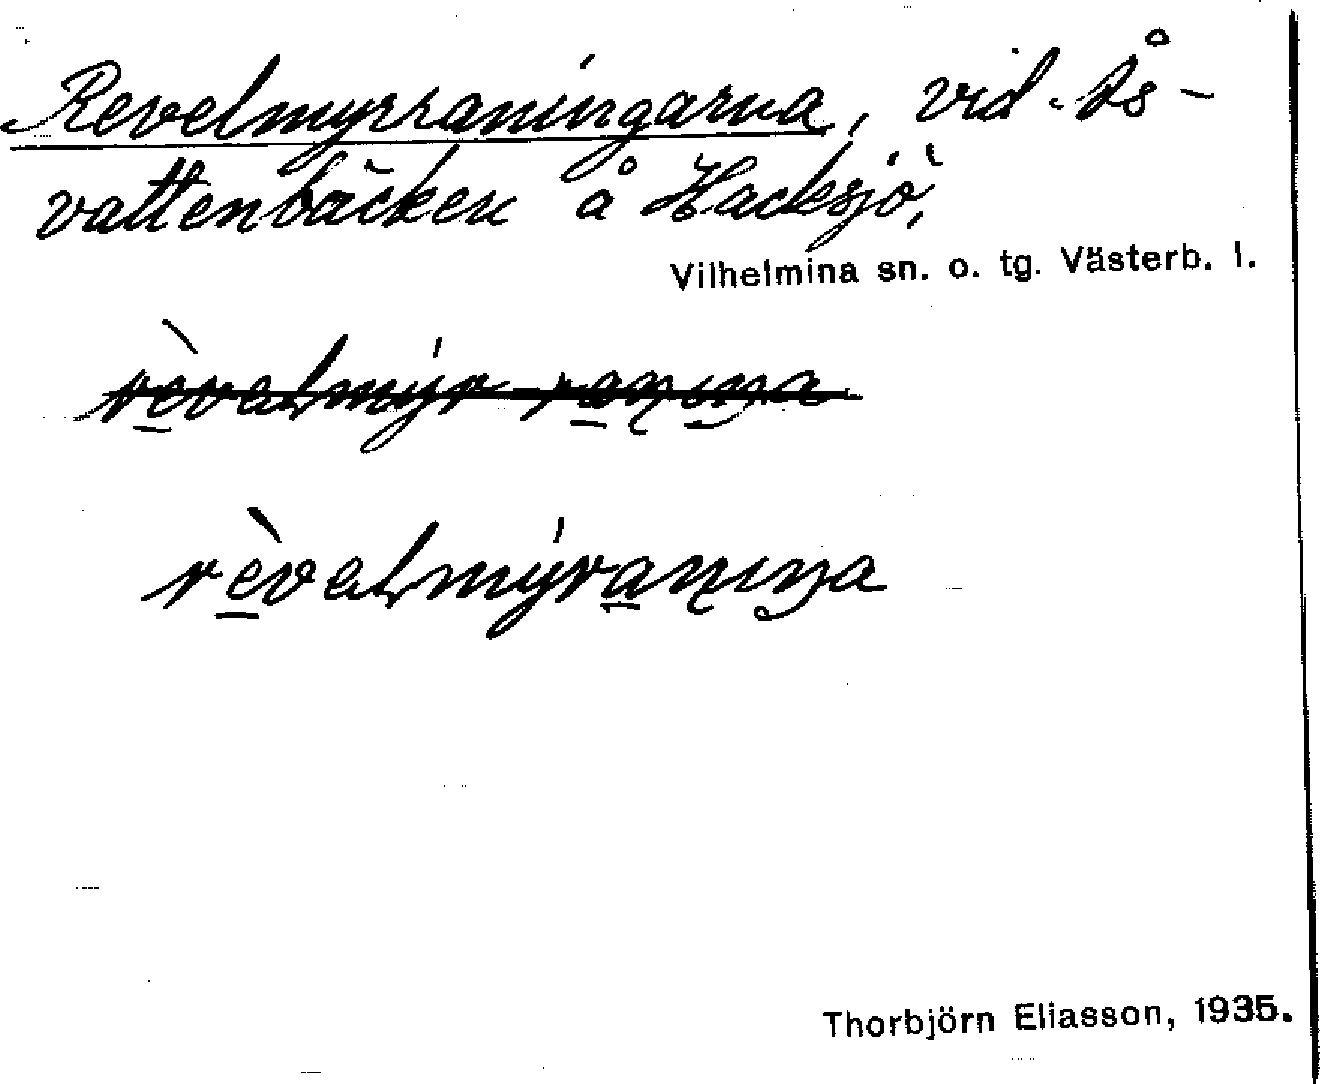 Revelmyrraningarna, vid Ås-
vattenbäcken å Hacksjö,
Vilhelmina sn. o. tg. Västerb. l.
rèvelmýraniŋa
Thorbjörn Eliasson, 1935.